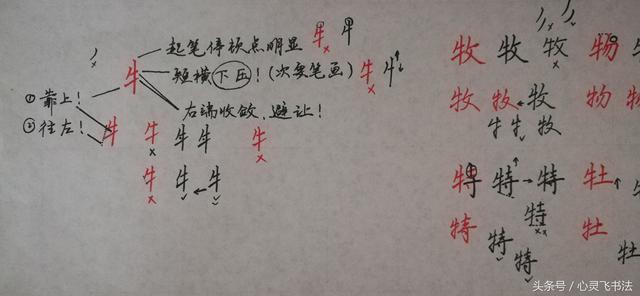 起笔停顿点明显 牛 牛
牛 短横下压！（次要笔画）牛 牛
①靠上！ 右端收敛，避让！
②往左！ 牛 牛 牛 牛 牛
牛 牛 牛
牧 牧 牧 物
牧 牧 牧 物 物
牛 牛 牧
特 特 特 牡
特 特 牡
特 特 牡
头条号 / 心灵飞书法